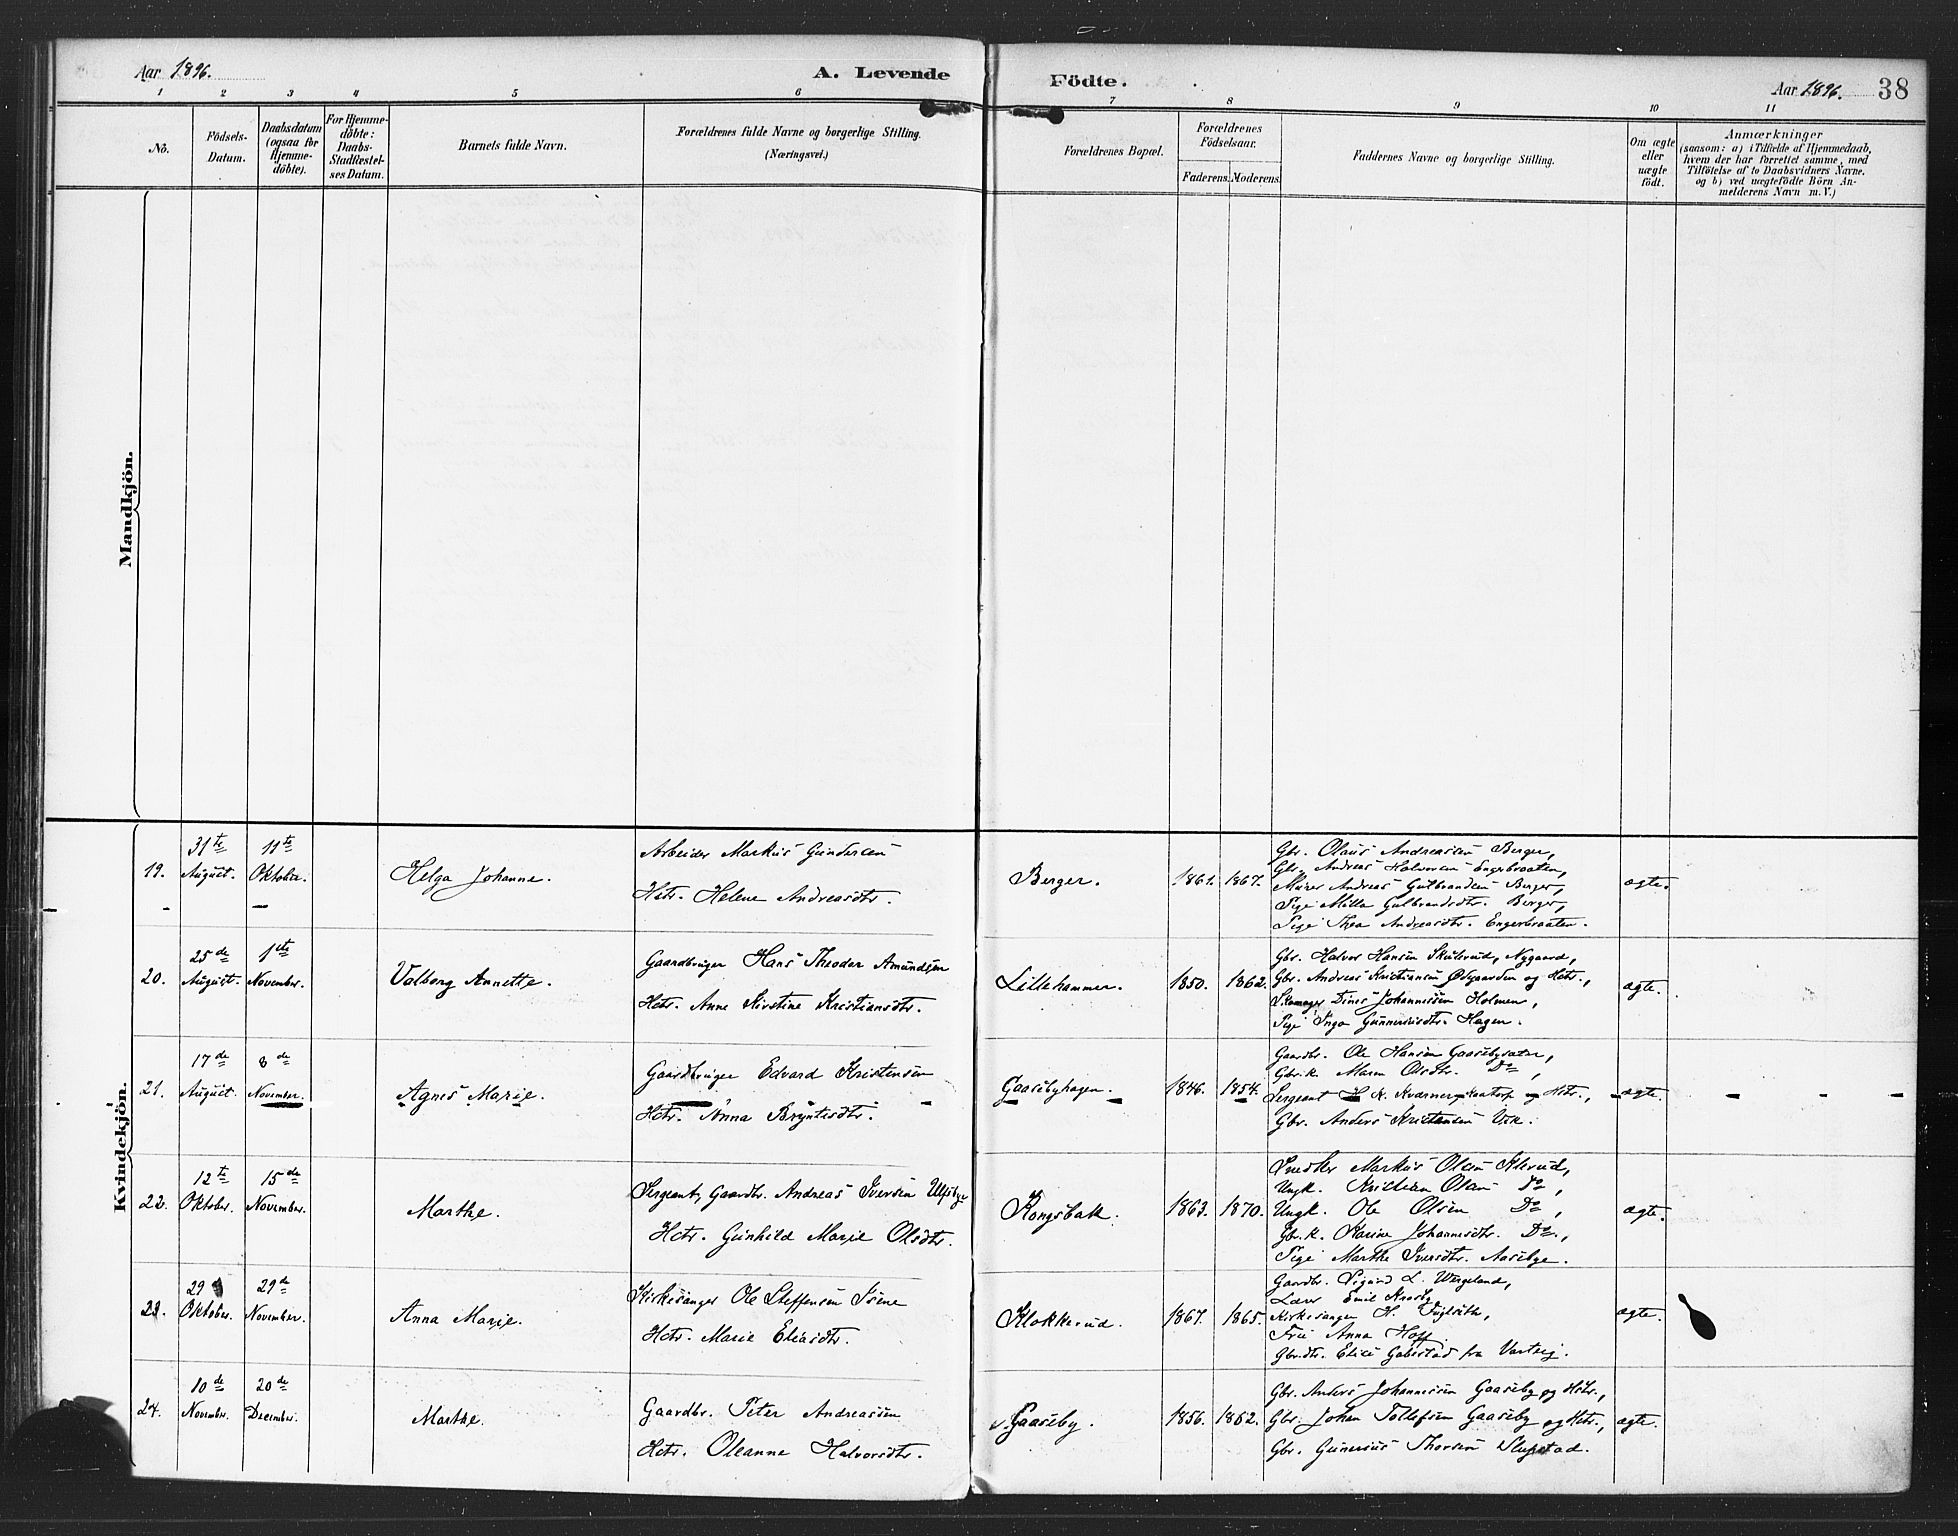 Aar 1896.
A. Levende
Födte.
Aar 1896.
38
1 2 3 4 5 6 7 8 9 10 11
No.
Födsels-
Datum.
Daabsdatum
(ogsaa for
Hjemme-
döbte).
For Hjemme-
döbte:
Daabs-
Stadfæstel-
ses Datum.
Barnets fulde Navn.
Forældrenes fulde Navne og borgerlige Stilling.
(Næringsvei.)
Forældrenes Bopæl.
Forældrenes
Födselsaar.
Faderens. Moderens.
Faddernes Navne og borgerlige Stilling.
Om ægte
eller
uægte
födt.
Anmærkninger
(saasom: a) i Tilfælde af Hjemmedaab,
hvem der har forrettet samme, med
Tilföielse af to Daabsvidners Navne,
og b) ved uægtefödte Börn An-
melderens Navn m. V.)
Mandkjön.
Kvindekjön.
19.
31te
August.
11te
Oktober.
Helga Johanne.
Arbeider Markus Gundersen
Hstr. Helene Andreasdtr.
Berger.
1861. 1867.
Gbr. Olaus Andreassen Berger,
Gbr. Andreas Halvorsen Engerbraaten,
Murer Andreas Gulbrandsen Berger,
Pige Milla Gulbrandsdtr. Berger,
Pige Thea Andreasdtr. Engerbraaten.
ægte.
20.
25de
August.
1ste
November.
Valborg Annette.
Gaardbruger Hans Theodor Amundsen
Hstr. Anne Kirstine Kristiansdtr.
Lillehammer.
1850. 1862.
Gbr. Halvor Hansen Skulerud, Nygaard,
Gbr. Andreas Kristiansen Ødegaarden og Hstr.,
Skomager Dines Johannessen Holmen,
Pige Inga Gunneriusdtr. Hagen.
ægte.
21.
17de
August.
8de
November.
Agnes Marie.
Gaardbruger Edvard Kristensen
Hstr. Anna Bryntesdtr.
Gaasebyhagen.
1846. 1854.
Gaardbr. Ole Hansen Gaasebysæter,
Gbr.k. Maren Olsdtr. Do,
Sergeant H. K. og Hstr.,
Gbr. Anders Kristensen Vik.
ægte.
22.
12te
Oktober.
15de
November.
Marthe.
Sergeant, Gaardbr. Andreas Iversen Ulfsbye
Hstr. Gunhild Marie Olsdtr.
Kongsbak.
1863. 1870.
Snedker Markus Olsen Ilerud,
Ungk. Kristian Olsen Do,
Ungk. Ole Olsen Do,
Gbr.k. Karine Johannesdtr. Do.,
Pige Marthe Iversdtr. Aasebye.
ægte.
23.
29
Oktober.
29de
November.
Anna Marie.
Kirkesanger Ole Steffensen Isene
Hstr. Marie Eliasdtr.
Klokkerud.
1867. 1865.
Gaardbr. Sigurd L. Wergeland,
Lærer Emil Krosby
Kirkesanger H. Fuglseth,
Fru Anna Hoff
Gbr.dtr. Elise Gabestad fra Varteig.
ægte.
24.
10de
November.
20de
December.
Marthe.
Gaardbr. Peter Andreassen
Hstr. Oleanne Halvorsdtr.
Gaaseby.
1856. 1862.
Gbr. Anders Johannessen Gaaseby og Hstr.,
Gbr. Johan Tollefsen Gaaseby og Hstr.,
Gbr. Gunerius Thorsen Slupstad.
ægte.